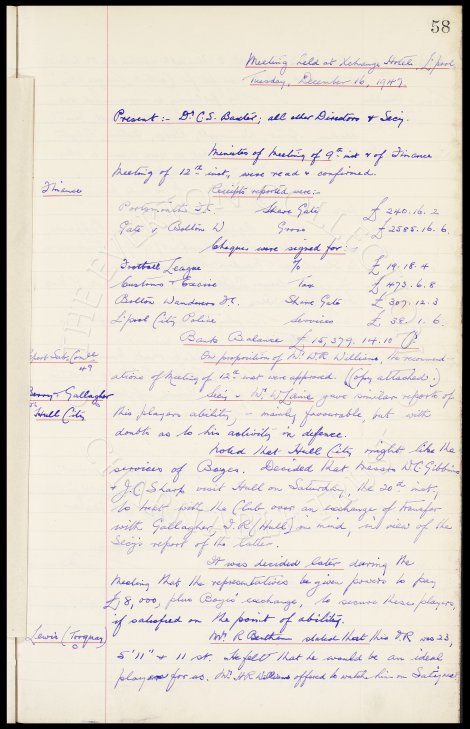 58
Meeting held at Xchange Hotel, L'pool,
Tuesday, December 16, 1947.
Present :- Dr C.S. Baxter; all other Directors & Secy.
Minutes of Meeting of 9th inst & of Finance
Meeting of 12th inst, were read & confirmed.
Finance
Receipts reported were:-
Portsmouth F.C. Share Gate £ 240.16.2
Gate v. Bolton W Gross £ 2585.16.6.
Cheques were signed for:-
Football League % £ 19.18.4
Customs & Excise Tax £ 473.6.8
Bolton Wanderers F.C. Share Gate £ 307.12.3
L'pool City Police Services £ 38.1.6.
Bank Balance £ 15,379.14.10
On proposition of Mr W.R. Williams, the recommend-
ations of Meeting of 12th inst were approved. (Copy attached.)
Gallagher
Hull City
Secy & Mr W. gave similar reports of
this players ability, - mainly favourable, but with
doubts as to his activity in defence.
Noted that Hull City might like the
services of Boyes. Decided that Messrs W.C. Gibbins
& J.C. Sharp visit Hull on Saturday, the 20th inst,
to treat with the Club over an exchange of transfer
with Gallagher I.R. (Hull) in mind, in view of the
Secy's report of the latter.
It was decided later during the
Meeting that the representatives be given powers to pay
£8,000, plus Boyes' exchange, to secure these players,
if satisfied on the point of ability.
Lewis (Torquay)
Mr R stated that this I.R was 23,
5' 11" & 11 st. He felt that he would be an ideal
player for us. Mr W.R Williams offered to watch him on Satdy next